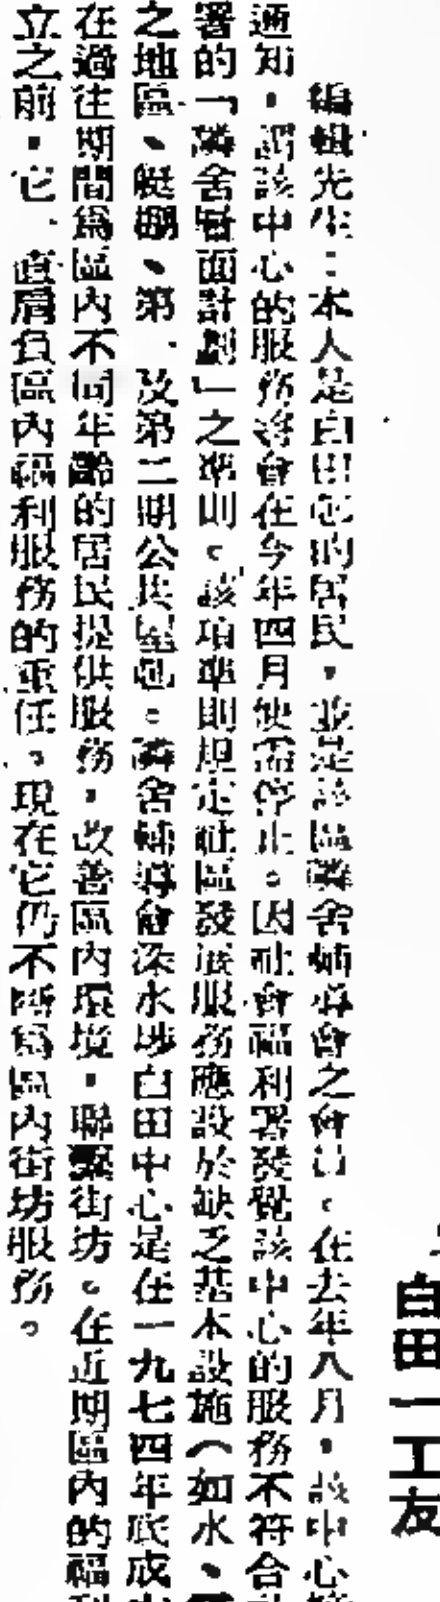 白田一工友
編輯先生：本人是白田邨的居民，並是該區隣舍輔導會之會員。在去年八月，該中心
通知，謂該中心的服務將會在今年四月便需停止。因社會福利署發覺該中心的服務不符合
署的「隣舍層面計劃」之準則。該項準則規定社區發展服務應設於缺乏基本設施（如水、
之地區、艇棚、第一及第二期公共屋邨。隣舍輔導會深水埗白田中心是在一九七四年底成
在過往期間爲區內不同年齡的居民提供服務，改善區內環境，聯繫街坊。在近期區內的福
立之前，它一直肩負區內福利服務的重任。現在它仍不斷爲區內街坊服務。